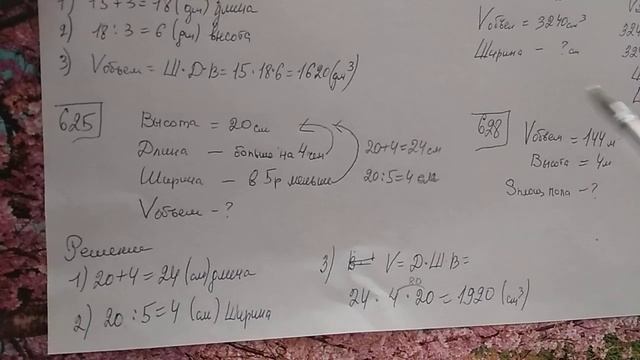 1) 15+3=18 (дм) длина
2) 18:3=6 (дм) высота
3) Vобъем = Ш·Д·В = 15·18·6=1620(дм³)
Vобъем = 3240см³
Ширина - ?см
324
625
Высота = 20см
Длина - больше на 4 чем
20+4=24см
Ширина - в 5р меньше
20:5=4 см
Vобъем - ?
628
Vобъем = 144м
Высота = 4м
Sплощ пола - ?
Решение
1) 20+4=24 (см) длина
2) 20:5=4 (см) Ширина
3) V= Д·Ш·В=
80
24 · 4 · 20 = 1920 (см³)